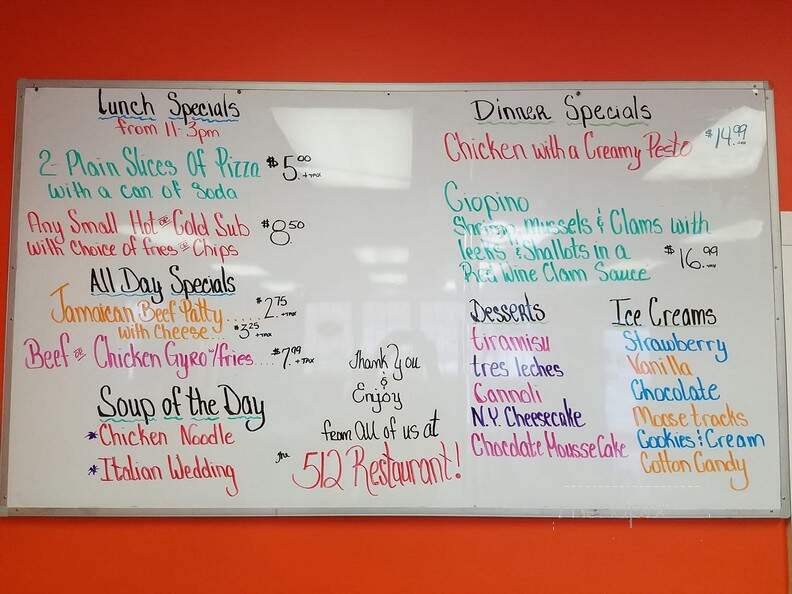 Lunch Specials
from 11-3pm
2 Plain Slices Of Pizza $5.00 +TAX
with a can of Soda
Any Small Hot or Cold Sub $8.50
with choice of fries or Chips
All Day Specials
Jamaican Beef Patty...... $2.75 +TAX
with Cheese... $3.25 +TAX
Beef or Chicken Gyro w/fries.... $7.99 +TAX
Soup of the Day
*Chicken Noodle
*Italian Wedding
Thank You
&
Enjoy
from All of us at
the 512 Restaurant!
Dinner Specials
Chicken with a Creamy Pesto $14.99
Ciopino
Shrimp, Mussels & Clams with
leeks & Shallots in a $16.99
Red Wine Clam Sauce
Desserts
tiramisu
tres leches
Cannoli
N.Y. Cheesecake
Chocolate Mousse Cake
Ice Creams
Strawberry
Vanilla
Chocolate
Moose tracks
Cookies & Cream
Cotton Candy